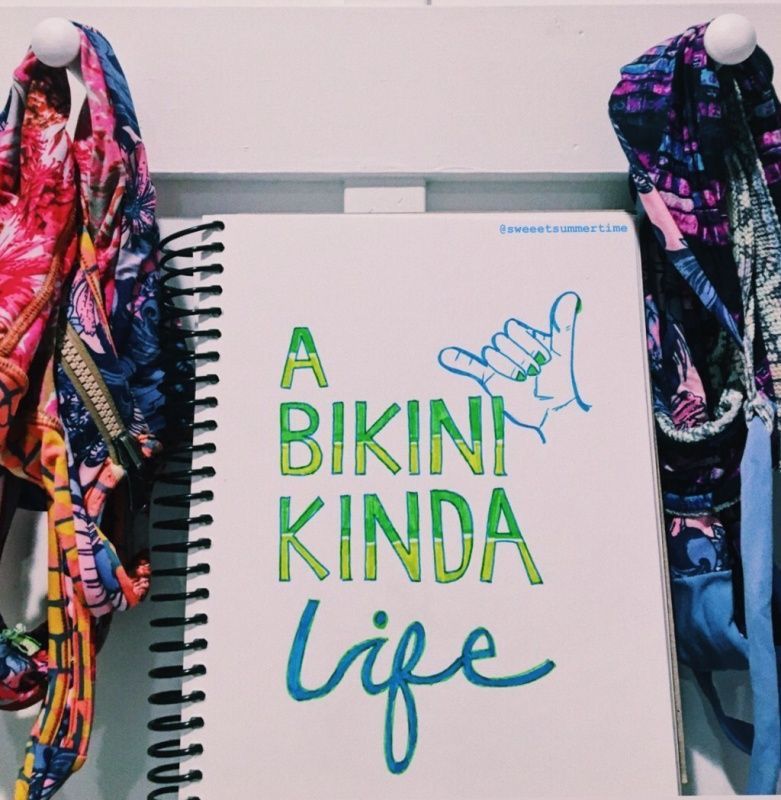 @sweeetsummertime
A
BIKINI
KINDA
Life